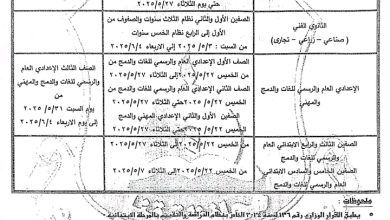 حتى يوم الثلاثاء ٢٠٢٥/٥/٢٧
الثانوي الفني
( صناعي – زراعي – تجارى )
الصفين الأول والثاني نظام الثلاث سنوات والصفوف من
الأول إلى الرابع نظام الخمس سنوات
من السبت : ٢٠٢٥/٥/٣ إلي الاربعاء ٢٠٢٥/٦/٤
الإعدادي العام والرسمي للغات والدمج
والمهني
الصفين الأول الإعدادي العام والرسمي للغات والدمج
من الخميس ٢٠٢٥/٥/٢٢ حتى الثلاثاء ٢٠٢٥/٥/٢٧
الصف الثاني الإعدادي العام والرسمي للغات والدمج من
الخميس ٢٠٢٥/٥/٢٢ حتى الثلاثاء ٢٠٢٥/٥/٢٧
الصفين الأول والثاني الإعدادي المهني والدمج
من الخميس ٢٠٢٥/٥/٢٢ حتى الثلاثاء ٢٠٢٥/٥/٢٧
الصف الثالث الإعدادي العام
والرسمي للغات والدمج والمهني
يوم السبت ٢٠٢٥/٥/٣١
إلى يوم الاربعاء ٢٠٢٥/٦/٤
الصفين الثالث والرابع الابتدائي العام
والرسمي للغات والدمج
الصفين الخامس والسادس الابتدائي
العام والرسمي للغات والدمج
من الخميس ٢٠٢٥/٥/٢٢ إلى الثلاثاء ٢٠٢٥/٥/٢٧
من الخميس ٢٠٢٥/٥/٢٢ إلى الثلاثاء
ملحوظات
يطبق القرار الوزاري رقم ١٣٦ لسنة ٢٠٢٤